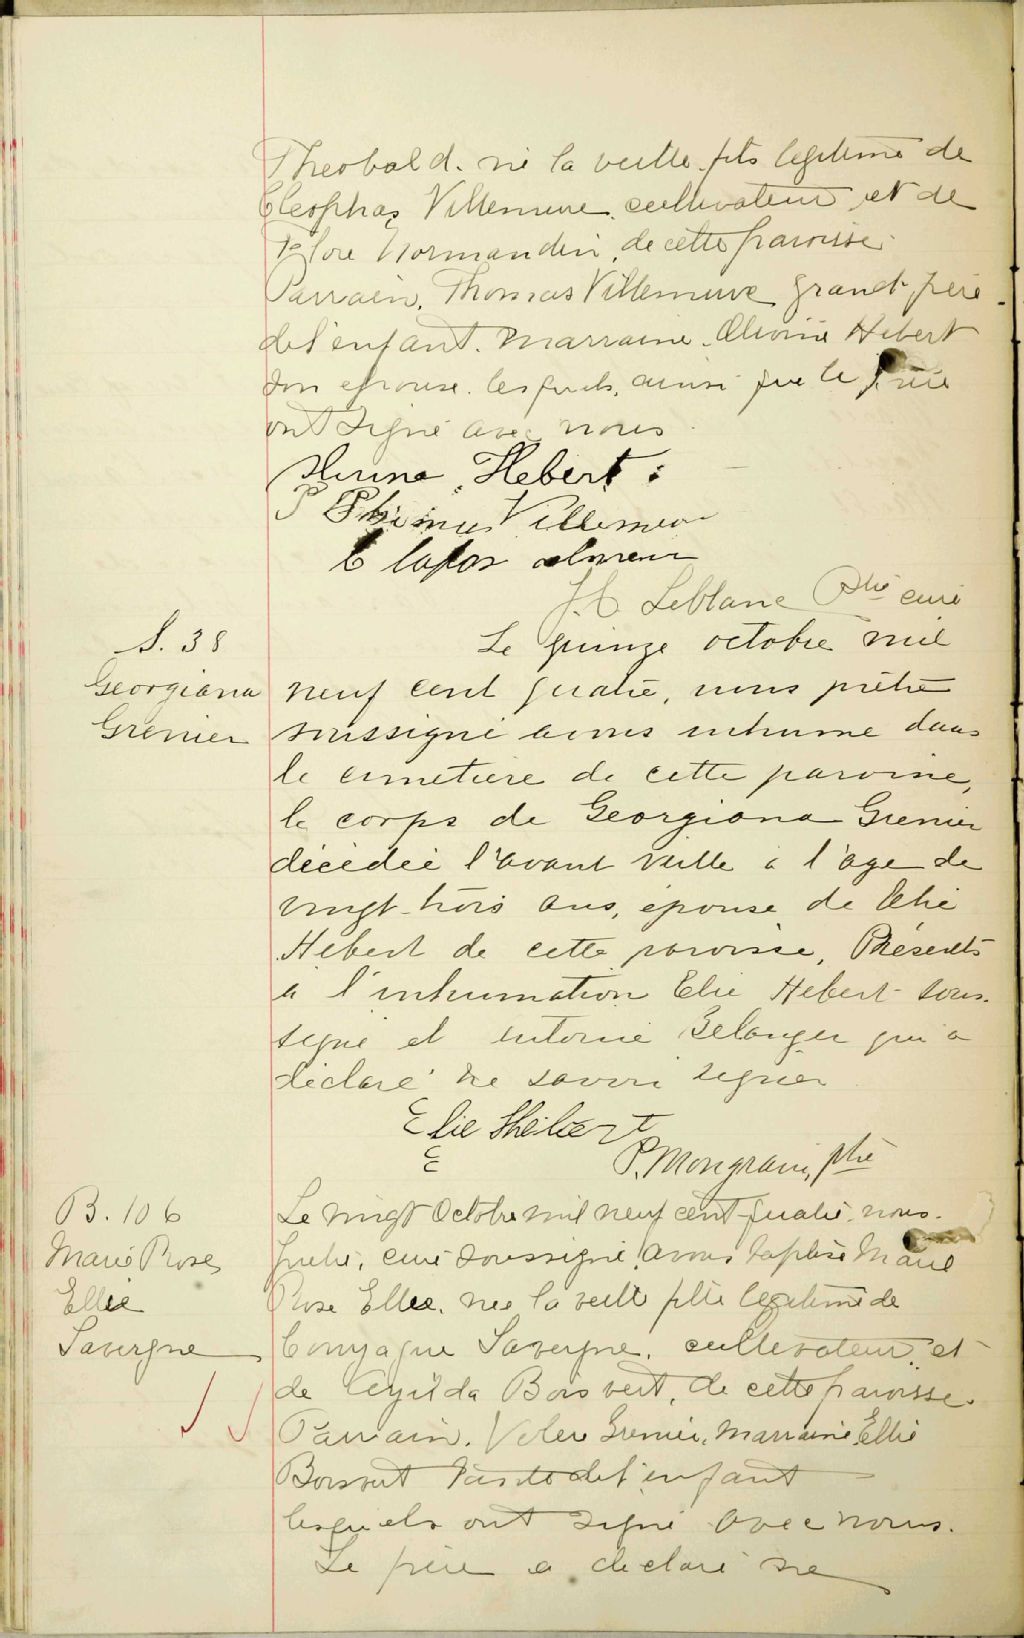 Theobald. né la veille fils légitime de
Cleophas Villemure, cultivateur et de
Flore Normandin, de cette paroisse.
Parrain, Thomas Villemure grand-père
de l'enfant. Marraine. Hebert
son épouse. lesquels, ainsi que le père
ont signé avec nous.
Hebert
Thomas Villemure
J. C Leblanc Ptre curé
S. 38
Georgiana
Grenier
Le quinze octobre mil
neuf cent quatre, nous prêtre
soussigné avons inhumé dans
le cimetière de cette paroisse,
le corps de Georgiana Grenier
décédée l'avant veille à l'age de
vingt-trois ans, épouse de Elie
Hebert de cette paroisse, Présents
à l'inhumation Elie Hebert sous-
signé et Belanger qui a
déclaré ne savoir signer
Elie Hebert
E
P. Mongrain, ptre
B. 106
Marie Rose
Ellie
Lavergne
Le vingt Octobre mil neuf cent-quatre, nous.
prêtre, curé soussigné, avons baptisé Marie
Rose Ellee, née la veille fille légitime de
Lavergne, cultivateur, et
de Boisvert, de cette paroisse.
Parrain. Grenier, Marraine Ellie
Boisvert tante de l'enfant
lesquels ont signé avec nous.
Le père a déclaré ne